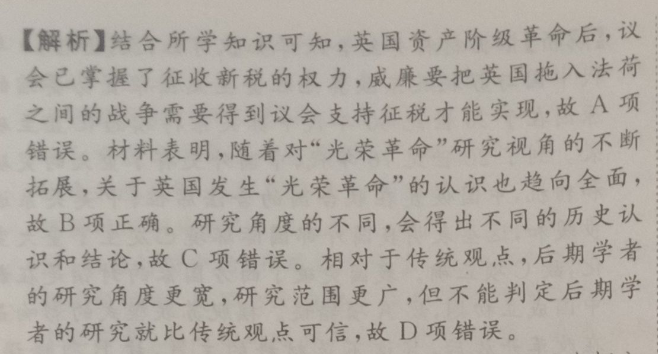 【解析】结合所学知识可知,英国资产阶级革命后,议
会已掌握了征收新税的权力,威廉要把英国拖入法荷
之间的战争需要得到议会支持征税才能实现,故 A 项
错误。材料表明,随着对“光荣革命”研究视角的不断
拓展,关于英国发生“光荣革命”的认识也趋向全面,
故 B 项正确。研究角度的不同,会得出不同的历史认
识和结论,故 C 项错误。相对于传统观点,后期学者
的研究角度更宽,研究范围更广,但不能判定后期学
者的研究就比传统观点可信,故 D 项错误。